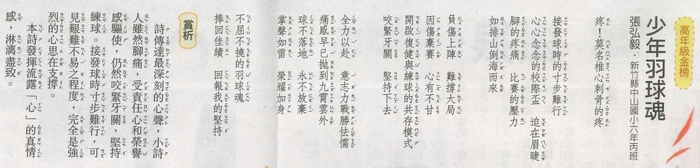 高年級金榜
少年羽球魂
張弘毅．新竹縣中山國小六年丙班
疼！莫名椎心刺骨的疼
接發球時的寸步難行
心心念念的校際盃　迫在眉睫
腳的疼痛　比賽的壓力
如排山倒海而來
負傷上陣　難撐大局
因傷棄賽　心有不甘
開啟復健與練球的共存模式
咬緊牙關　堅持下去
全力以赴　意志力戰勝怯懦
痛感早已拋到九霄雲外
球不落地　永不放棄
掌聲如雷　榮耀加身
不屈不撓的羽球魂
捧回佳績　回報我的堅持
賞析
詩傳達最深刻的心聲，小詩
人雖然腳痛，受責任心和榮譽
感驅使，仍然咬緊牙關，堅持
練球。接發球時寸步難行，可
見艱難不易之程度，完全是強
烈的心思在支撐。
本詩發揮流露「心」的真情
感，淋漓盡致。